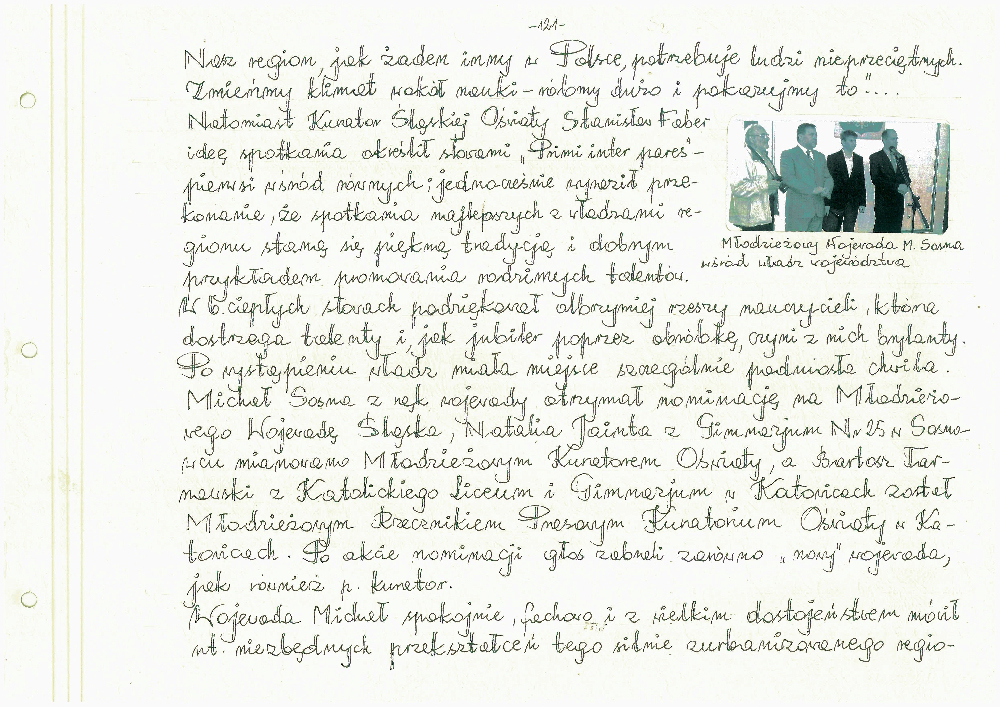 -121-
Nasz region, jak żaden inny w Polsce, potrzebuje ludzi nieprzeciętnych.
Zmieńmy klimat wokół nauki - róbmy dużo i pokazujmy to"....
Natomiast Kurator Śląskiej Oświaty Stanisław Faber
ideę spotkania określił słowami „Primi inter pares" -
pierwsi wśród równych; jednocześnie wyraził prze-
konanie, że spotkania najlepszych z władzami re-
gionu staną się piękną tradycją i dobrym
przykładem promowania rodzimych talentów.
Młodzieżowy Wojewoda M. Sosna
wśród władz województwa
W b. ciepłych słowach podziękował olbrzymiej rzeszy nauczycieli, która
dostrzega talenty i, jak jubiler poprzez obróbkę, czyni z nich brylanty.
Po wystąpieniu władz miała miejsce szczególnie podniosła chwila.
Michał Sosna z rąk wojewody otrzymał nominację na Młodzieżo-
wego Wojewodę Śląska, Natalia Jainta z Gimnazjum Nr 25 w Sosno-
wcu mianowano Młodzieżowym Kuratorem Oświaty, a Bartosz Tar-
nawski z Katolickiego Liceum i Gimnazjum w Katowicach został
Młodzieżowym Rzecznikiem Prasowym Kuratorium Oświaty w Ka-
towicach. Po akcie nominacji głos zabrali zarówno „nowy" wojewoda,
jak również p. kurator.
Wojewoda Michał spokojnie, fachowo i z wielkim dostojeństwem mówił
nt. niezbędnych przekształceń tego silnie zurbanizowanego regio-